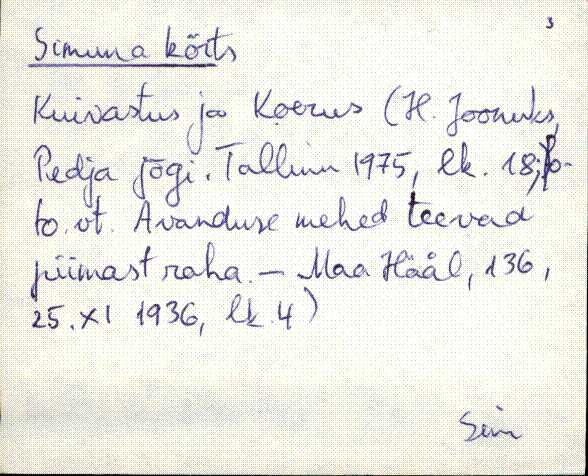 3
Simuna kõrts
Kuivastus ja Koerus (H. Joonuks,
Pedja jõgi. Tallinn 1975, lk. 18; fo-
to vt. Avanduse mehed teevad
piimast raha. — Maa Hääl, 136,
25. XI 1936, lk. 4)